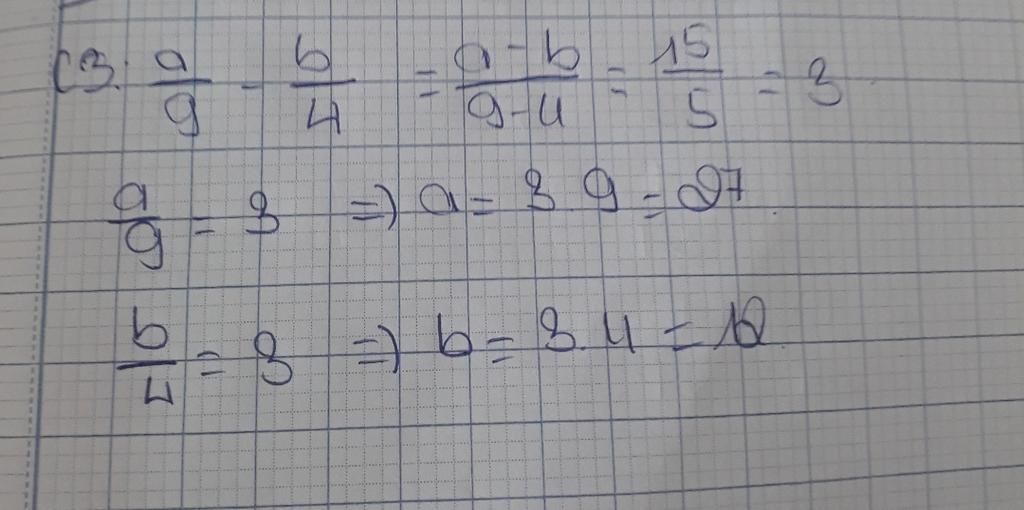 C3. a/9 - b/4 = a-b/9-4 = 15/5 = 3
a/9 = 3 => a = 3 9 = 27
b/4 = 3 => b = 3.4 = 12